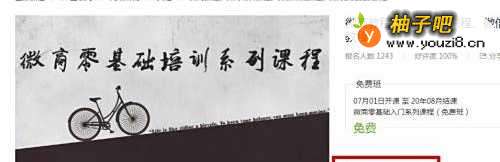 微商零基础培训系列课程
"Life is like riding a bicycle. To keep your balance, you must keep moving."
柚子吧
www.youzi8.cn
报名人数 1243
好评度 100%
分享
免费班
07月01日开课 至 20年08月结课
微商零基础入门系列课程（免费班）
免费